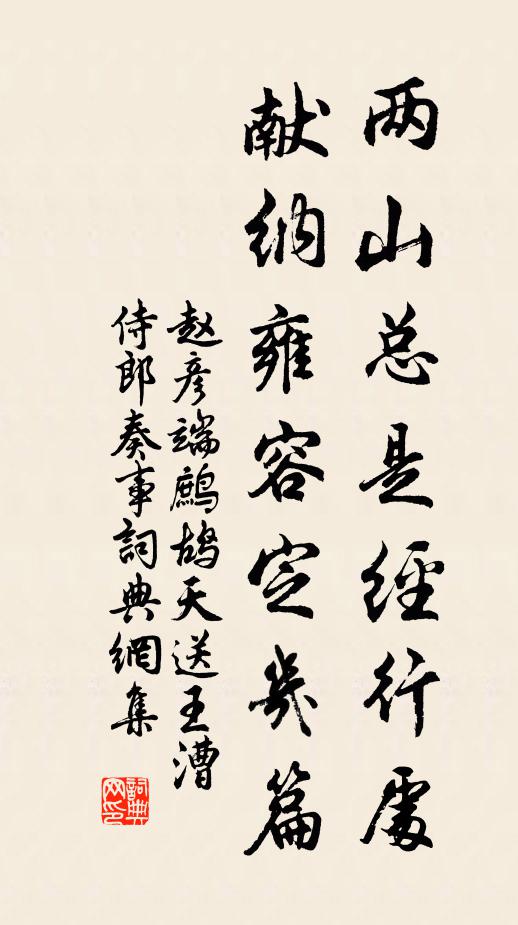 两山总是經行處
献纳雍容定幾篇
赵彦端鹧鸪天送王漕
侍郎奏事詞典網集
詞典网印